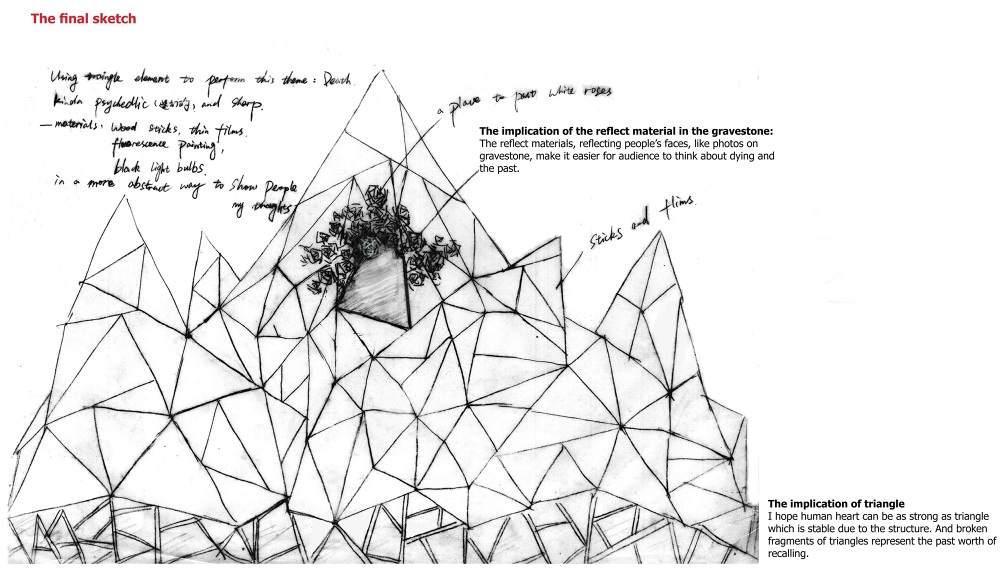 The final sketch
Using triangle element to perform this theme : Death.
kinda psychedlic (迷幻的) and sharp.
— materials: wood sticks, thin films.
fluorescence painting,
black light bulbs.
in a more abstract way to show people
my thoughts.
a place to put white roses
The implication of the reflect material in the gravestone:
The reflect materials, reflecting people's faces, like photos on
gravestone, make it easier for audience to think about dying and
the past.
sticks and flims.
The implication of triangle
I hope human heart can be as strong as triangle
which is stable due to the structure. And broken
fragments of triangles represent the past worth of
recalling.